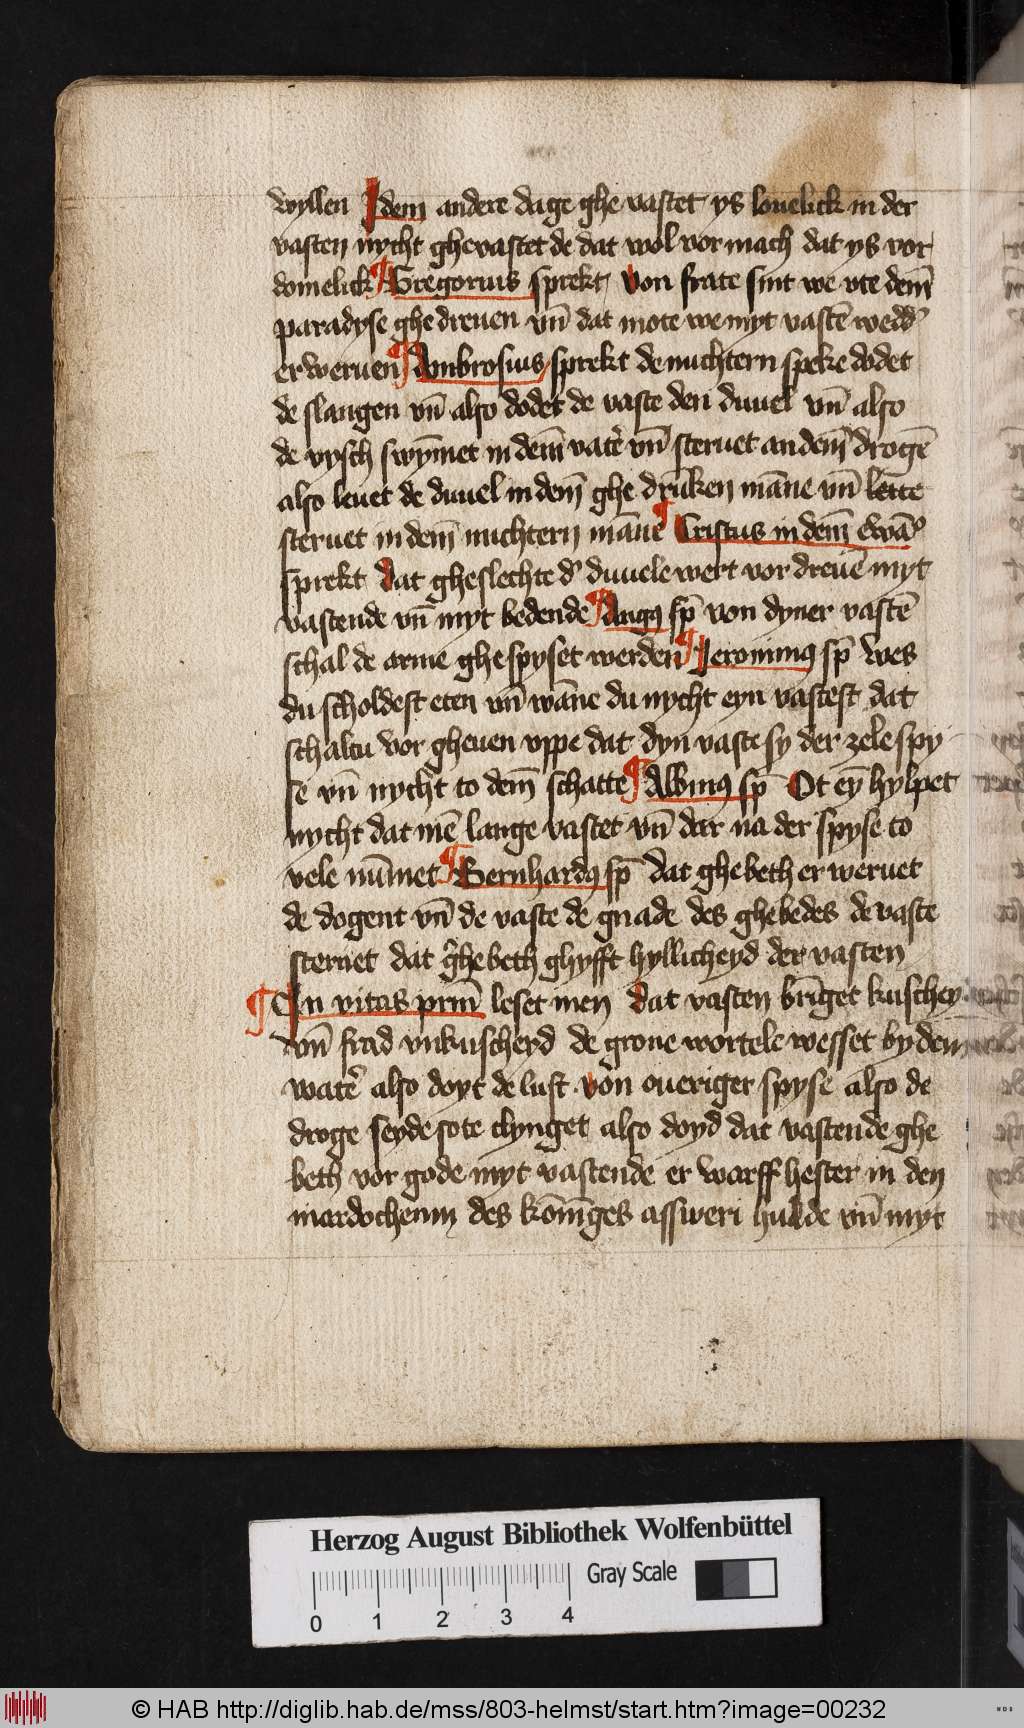 wyllen Idem andere dage ghe vastet ys louelick in der
vasten nycht ghevastet de dat wol vor mach dat ys vor
domelick ¶ Gregorius sprekt von frate sint we vte dem̄
paradyse ghe dreuen vn̄ dat mote we myt vastē wedd̕
erweruen ¶ Ambrosius sprekt de nuchtern speke dodet
de slangen vn̄ also dodet de vaste den duuel vn̄ also
de vysch swȳmet in dem̄ vatē vn̄ steruet an dem̄ drogē
also leuet de duuel in dem̄ ghe drūken māne vn̄
steruet in dem̄ nuchtern māne ¶ Cristus in dem̄ Ewā̕
sprekt dat gheslechte d̕ duuele wert vor dreuē myt
vastende vn̄ myt bedende ¶ Augꝯ sp̄ von dyner vastē
schal de arme ghe spyset werden ¶ Jeronimꝯ sp̄ wes
du scholdest eten vn̄ wāne du nycht eyn vastest dat
schaltu vor gheuen vppe dat dyn vaste sy der zele spy
se vn̄ nycht to dem̄ schatte ¶ Albinꝯ sp̄ Ot eȳ hylpet
nycht dat mē lange vastet vn̄ dar na der spyse to
vele nūmet ¶ Bernhardꝯ sp̄ dat ghebeth erweruet
de dogent vn̄ de vaste de gnade des ghebedes de vaste
sternet dat ghebeth ghyfft hyllicheyd der vasten
¶ In vitas prm̄ leset men dat vasten brīget kuschey
vn̄ frad vnkuscheyd de grone wortele wesset by dem
watē also doyt de lust von oueriger spyse also de
droge seyde sote clynget also doyd dat vastende ghe
beth vor gode myt vastende er warff hester in den
mardocheum des kōnīges assweri hulde vn̄ myt
Herzog August Bibliothek Wolfenbüttel
Gray Scale
0 1 2 3 4
© HAB http://diglib.hab.de/mss/803-helmst/start.htm?image=00232